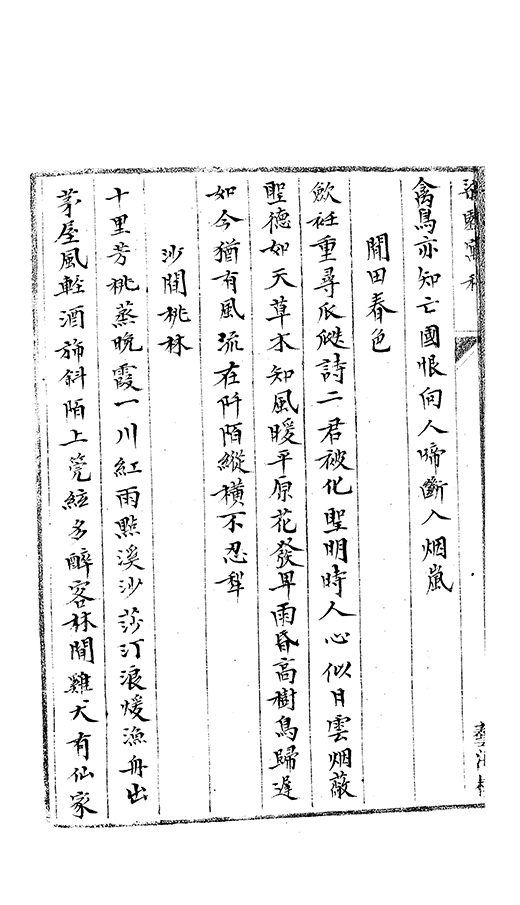 禽鳥亦知亡國恨向人啼斷入烟嵐
閒田春色
飲衽重尋瓜瓞詩二君被化聖明時人心似日雲烟蔽
聖德如天草木知風暖平原花發早雨昏高樹鳥歸遲
如今猶有風流在阡陌縱橫不忍犁
沙閒桃林
十里芳桃蒸晩霞一川紅雨點溪沙莎汀浪煖漁舟出
茅屋風輕酒斾斜陌上管絃多醉客林間雞犬有仙家